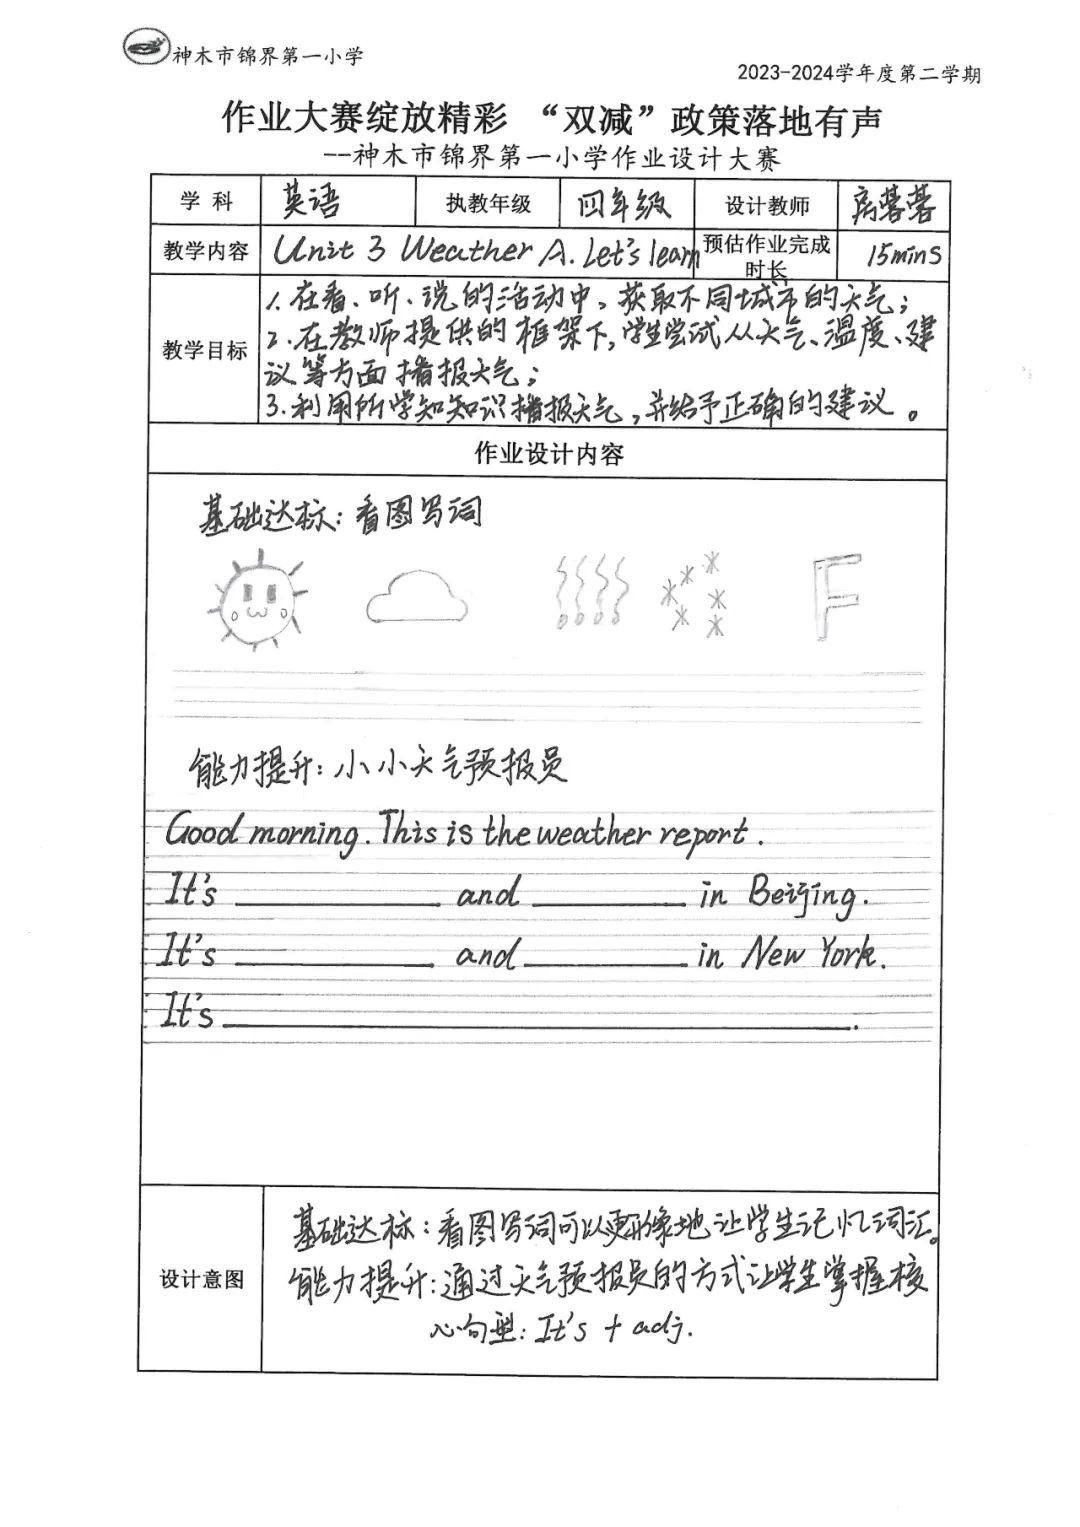 神木市锦界第一小学
2023-2024学年度第二学期
作业大赛绽放精彩 “双减”政策落地有声
--神木市锦界第一小学作业设计大赛
学 科 英语 执教年级 四年级 设计教师 蓉蓉
教学内容 Unit 3 Weather A. Let's learn 预估作业完成时长 15mins
教学目标
1. 在看、听、说的活动中，获取不同城市的天气；
2. 在教师提供的框架下，学生尝试从天气、温度、建
议等方面播报天气；
3. 利用所学知知识播报天气，并给予正确的建议。
作业设计内容
基础达标：看图写词
F
能力提升：小小天气预报员
Good morning. This is the weather report.
It's ________ and ________ in Beijing.
It's ________ and ________ in New York.
It's ________________.
设计意图
基础达标：看图写词可以更形像地让学生记忆词汇。
能力提升：通过天气预报员的方式让学生掌握核
心句型：It's + adj.